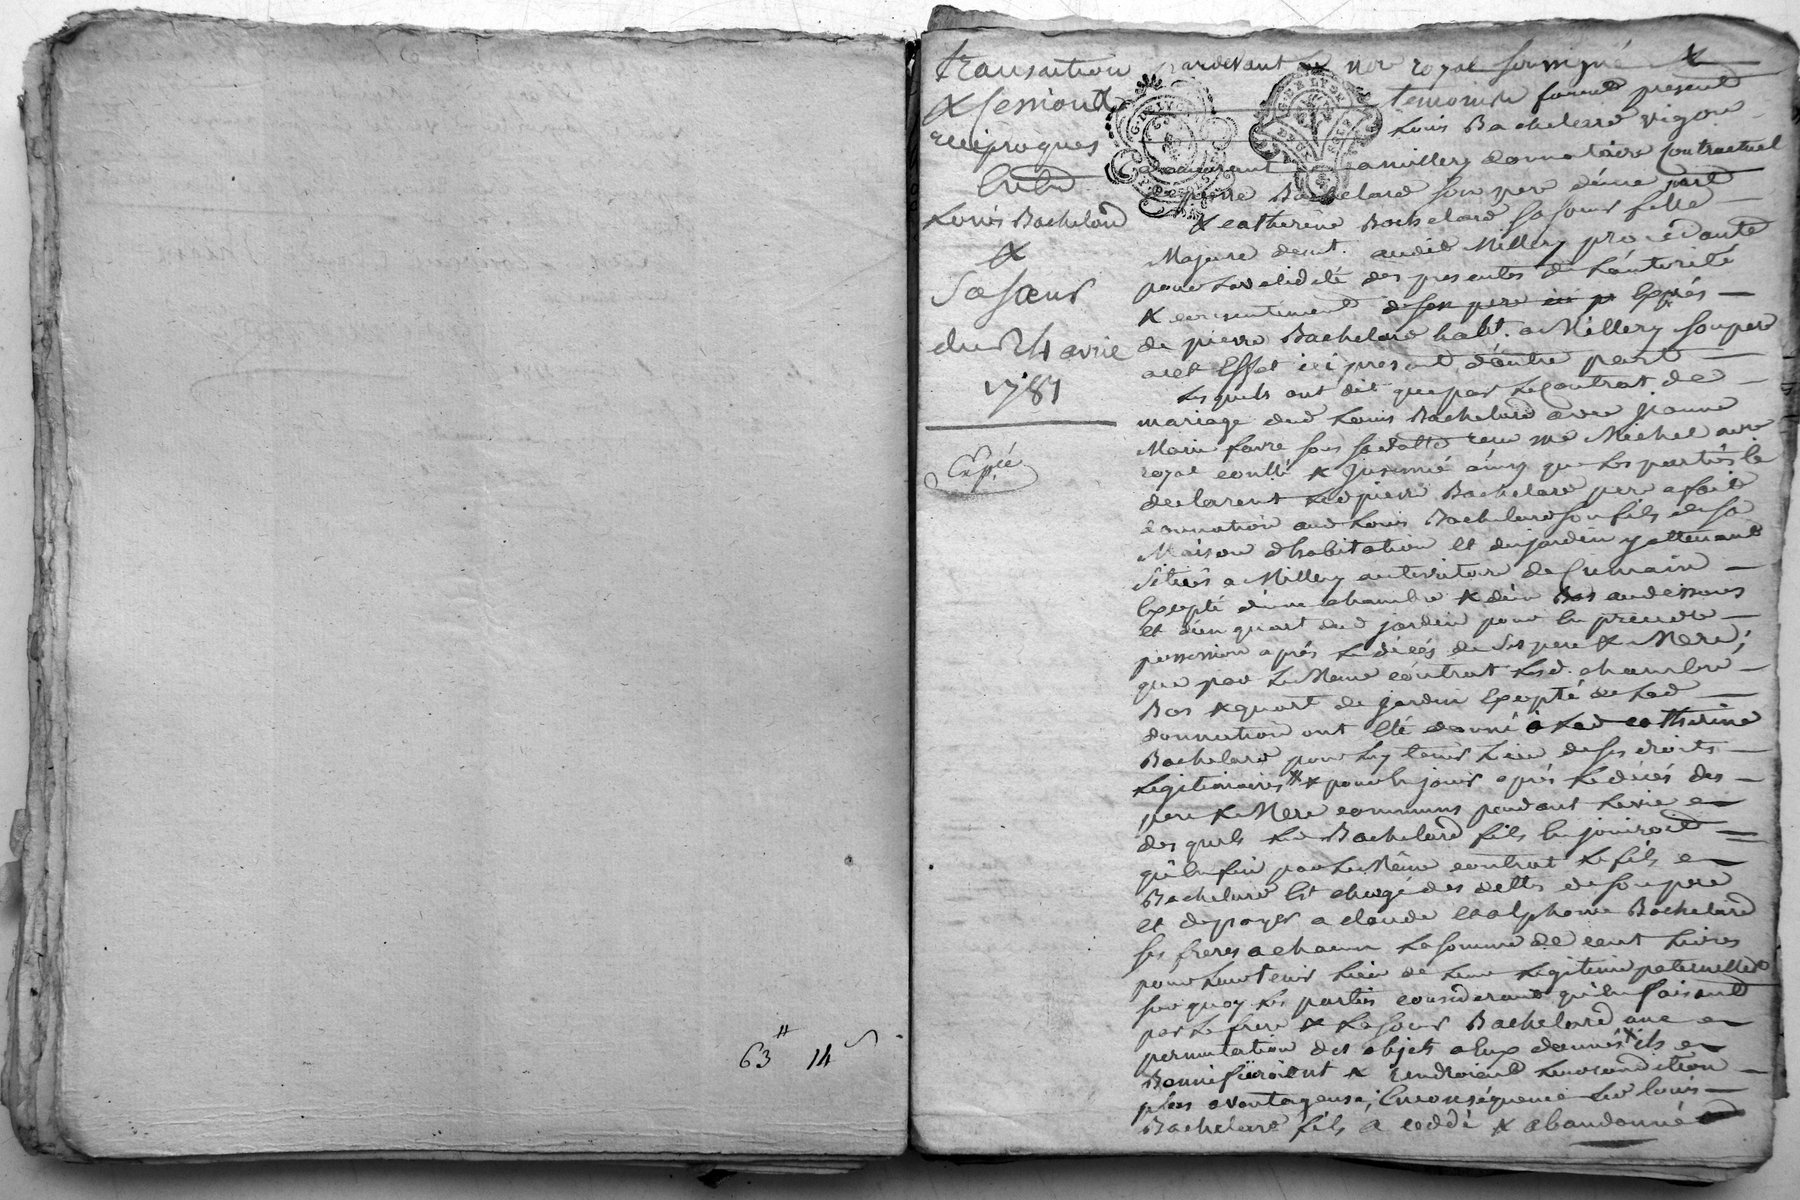 63" 14 s
transaction
& Cessions
reciproques
Entre
Louis Bachelard
&
Sa Sœur
du 24 avril
1781
Expée
pardevant Le nore royal soussigné &
temoins furent present
Louis Bachelard vigon
demeurant a millery donnataire Contractuel
de pierre Bachelard son pere d'une part
& catherine Bachelard sa sœur fille
Majeure demt. audit Millery procédante
pour La validité des presentes de L'autorité
& consentement de son pere ici pr Exprés
de pierre Bachelard habt. a Millery son pere
a cet Effet ici present d'autre part
Lesquels ont dit que par Le Contrat de
mariage dud Louis Bachelard avec jeanne
Marie favre sous sa datte recu me Michel nore
royal conllé & Insinué ainsy que Les parties le
declarent Led pierre Bachelard pere a fait
donnation aud Louis Bachelard son fils de sa
Maison d'habitation et du jardin y attenant
Situés a Millery au territoire de
Excepté d'une chambre & d'un Bas au dessous
et d'un quart dud jardin pour En prendre
possession aprés Le décés de ses pere & Mere;
que par Le Meme contrat Lesd. chambre
Bas & quart de jardin Excepté de Lad
donnation ont Eté donné a Lad catherine
Bachelard pour Luy tenir Lieu de ses droits
Legitimaires & pour En jouir aprés Le décés des
pere & Mere communs pendant La vie
desquels Led Bachelard fils En jouiroit
qu'Enfin par Le Même contrat Le fils
Bachelard Est chargé des dettes de son pere
et de payer a claude Bachelard
ses freres a chacun La somme de cent Livres
pour Leur tenir Lieu de Leur Legitime paternelle
sur quoy Les parties considerant qu'En faisant
par Le frere & La sœur Bachelard une
permutation des objets a Eux donnés ils
Bonnifieroient & rendroient Leur condition
plus avantageuse; En conséquence Led Louis
Bachelard fils a ceddé & abandonné